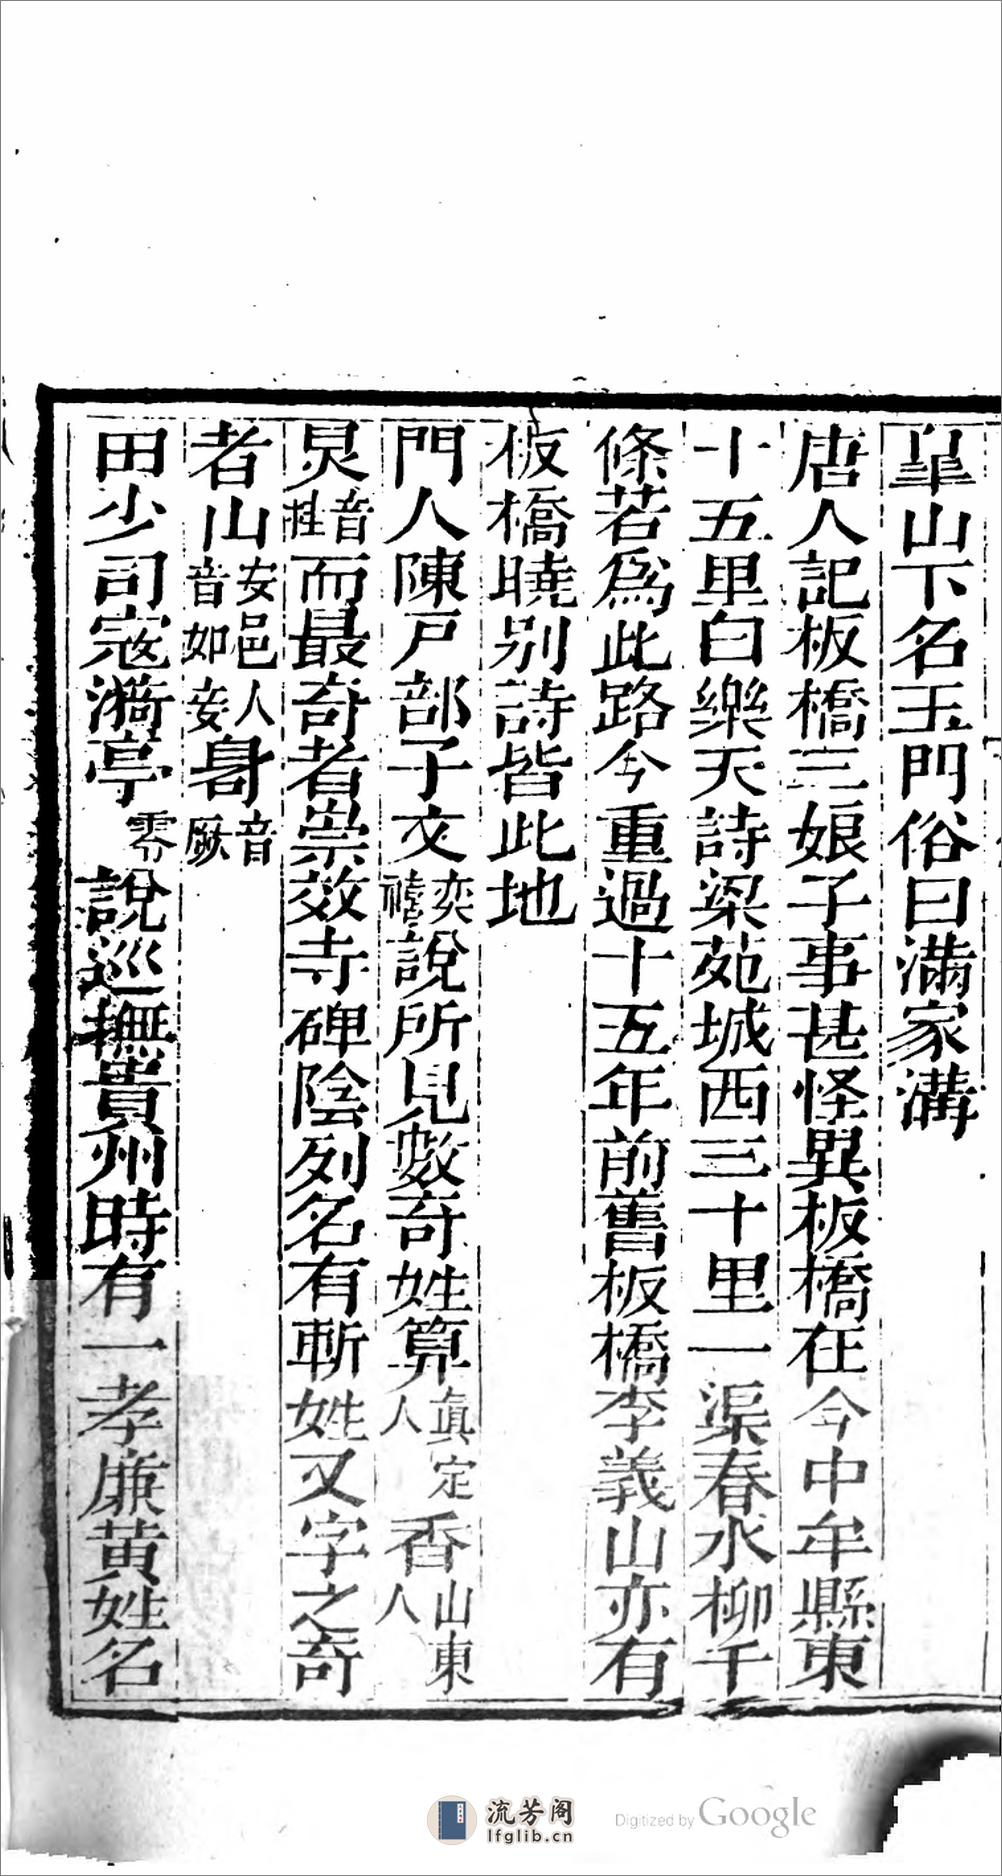 皐山下名玉門俗曰滿家溝
唐人記板橋三娘子事甚怪異板橋在今中牟縣東
十五里白樂天詩梁苑城西三十里一渠春水柳千
條若爲此路今重過十五年前舊板橋李義山亦有
板橋曉别詩皆此地
門人陳戸部子文奕禧說所見數奇姓算眞定人香山東人
炅音桂而最奇者崇效寺碑陰列名有斬姓又字之奇
者山安邑人音如音厥
田少司寇漪亭雰說巡撫貴州時有一孝廉黄姓名
流芳阁
lfglib.cn
Digitized by Google